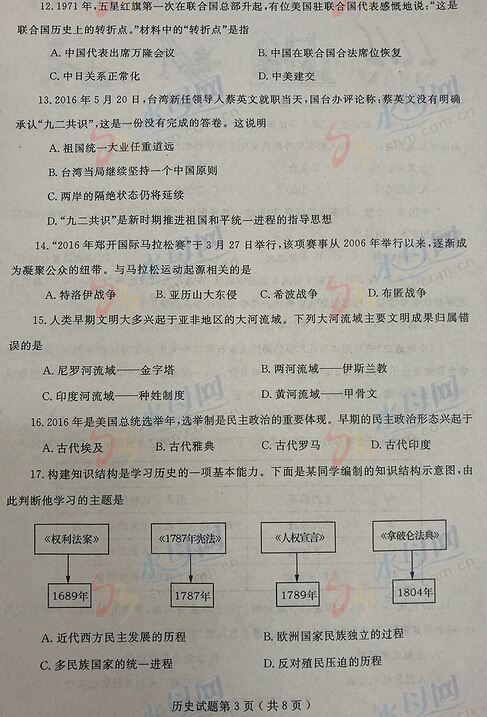 12.1971年,五星红旗第一次在联合国总部升起,有位美国驻联合国代表感慨地说:“这是
联合国历史上的转折点。”材料中的“转折点”是指
A.中国代表出席万隆会议 B.中国在联合国合法席位恢复
C.中日关系正常化 D.中美建交
13.2016年5月20日,台湾新任领导人蔡英文就职当天,国台办评论称:蔡英文没有明确
承认“九二共识”,这是一份没有完成的答卷。这说明
A.祖国统一大业任重道远
B.台湾当局继续坚持一个中国原则
C.两岸的隔绝状态仍将延续
D.“九二共识”是新时期推进祖国和平统一进程的指导思想
14.“2016年郑开国际马拉松赛”于3月27日举行,该项赛事从2006年举行以来,逐渐成
为凝聚公众的纽带。与马拉松运动起源相关的是
A.特洛伊战争 B.亚历山大东侵 C.希波战争 D.布匿战争
15.人类早期文明大多兴起于亚非地区的大河流域。下列大河流域主要文明成果归属错
误的是
A.尼罗河流域——金字塔 B.两河流域——伊斯兰教
C.印度河流域——种姓制度 D.黄河流域——甲骨文
16.2016年是美国总统选举年,选举制是民主政治的重要体现。早期的民主政治形态兴起于
A.古代埃及 B.古代雅典 C.古代罗马 D.古代印度
17.构建知识结构是学习历史的一项基本能力。下面是某同学编制的知识结构示意图,由
此判断他学习的主题是
《权利法案》 《1787年宪法》 《人权宣言》 《拿破仑法典》
1689年 1787年 1789年 1804年
A.近代西方民主发展的历程 B.欧洲国家民族独立的过程
C.多民族国家的统一进程 D.反对殖民压迫的历程
历史试题第3页(共8页)